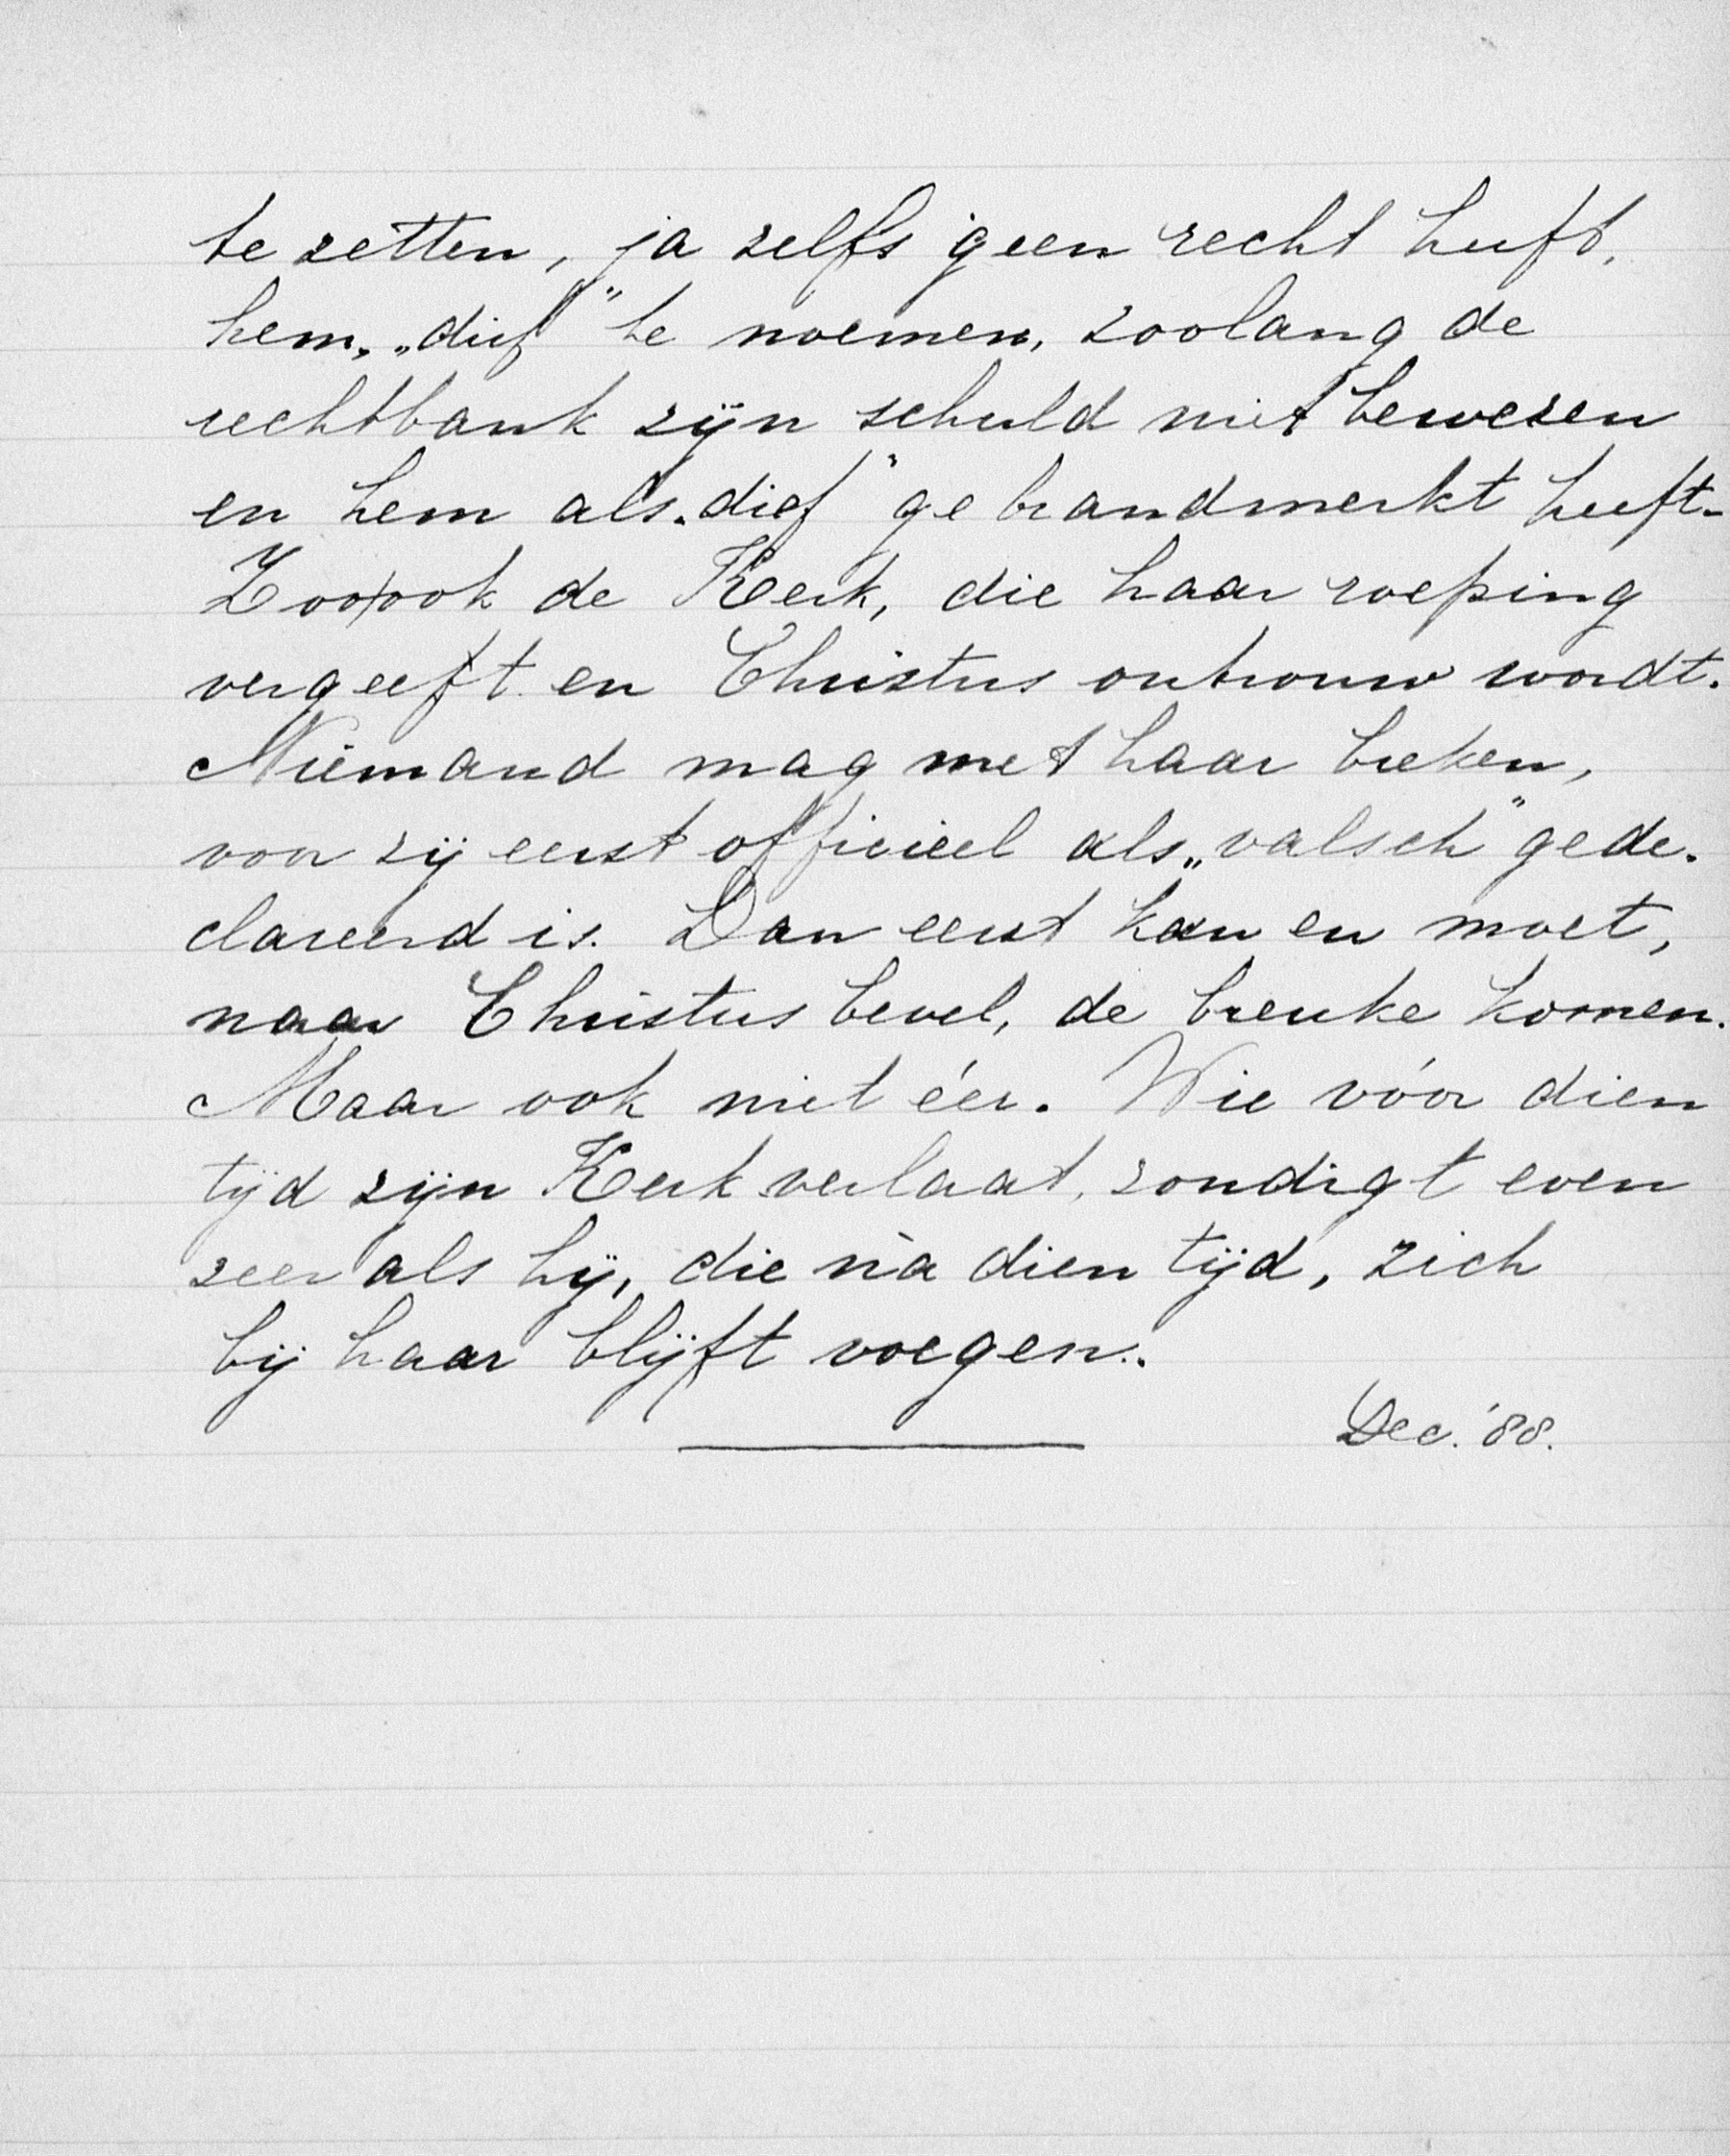 te zetten, ja zelfs geen recht heeft,
hem, „dief” te noemen, zoolang de
rechtbank zijn schuld niet bewezen
en hem als „dief” gebrandmerkt heeft.
Zoo ook de Kerk, die haar roeping
vergeet en Christus ontrouw wordt.
Niemand mag met haar breken,
voor zij eerst officieel als „valsch” gede-
clareerd is. Dan eerst kan en moet,
naar Christus bevel, de breuke komen.
Maar ook niet éér. Wie vóór dien
tijd zijn Kerk verlaat, zondigt even
zeer als hij, die nà dien tijd, zich
bij haar blijft voegen.
Dec. '88.